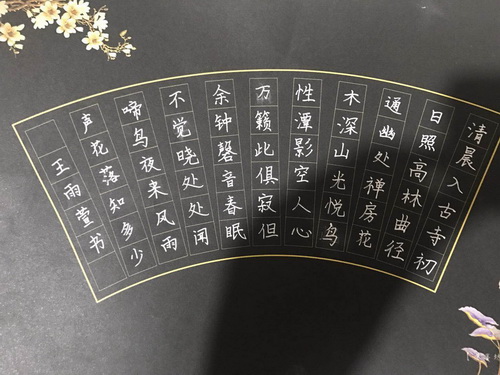 清晨入古寺初
日照高林曲径
通幽处禪房花
木深山光悦鸟
性潭影空人心
万籁此俱寂但
余钟磬音春眠
不觉晓处处闻
啼鸟夜来风雨
声花落知多少
王雨萱书